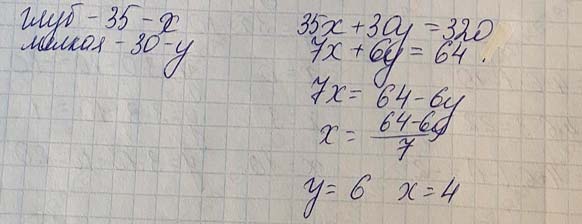 глуб - 35 - x
мелкая - 30 - y
35x + 30y = 320
7x + 6y = 64.
7x = 64 - 6y
x = (64 - 6y)/7
y = 6 x = 4